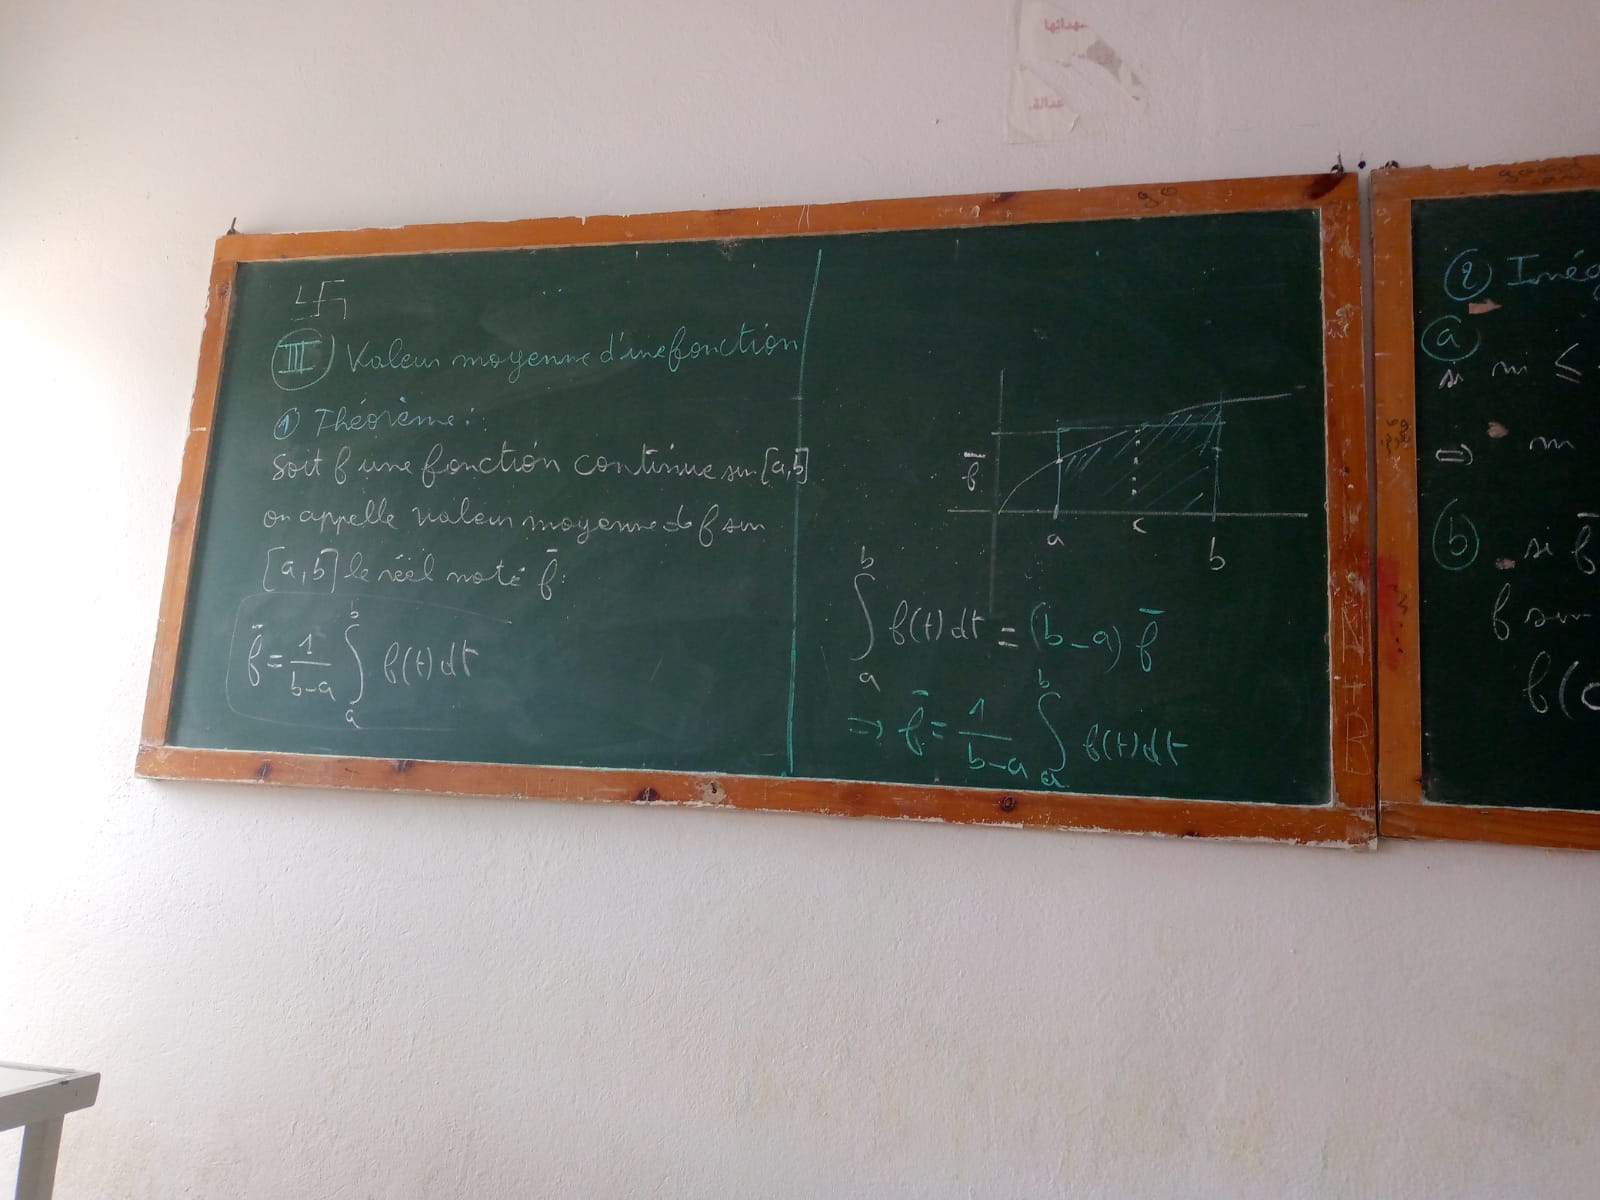 III Valeur moyenne d'une fonction
1 Théorème :
Soit f une fonction continue sur [a,b]
on appelle valeur moyenne de f sur
[a,b] le réel noté f̄ :
f̄ = 1/(b-a) ∫ₐᵇ f(t)dt
f̄
a c b
∫ₐᵇ f(t)dt = (b-a) f̄
⇒ f̄ = 1/(b-a) ∫ₐᵇ f(t)dt
2 Inég
a
si m ≤
⇒ m
b si f̄
f sur
f(c
عدالة